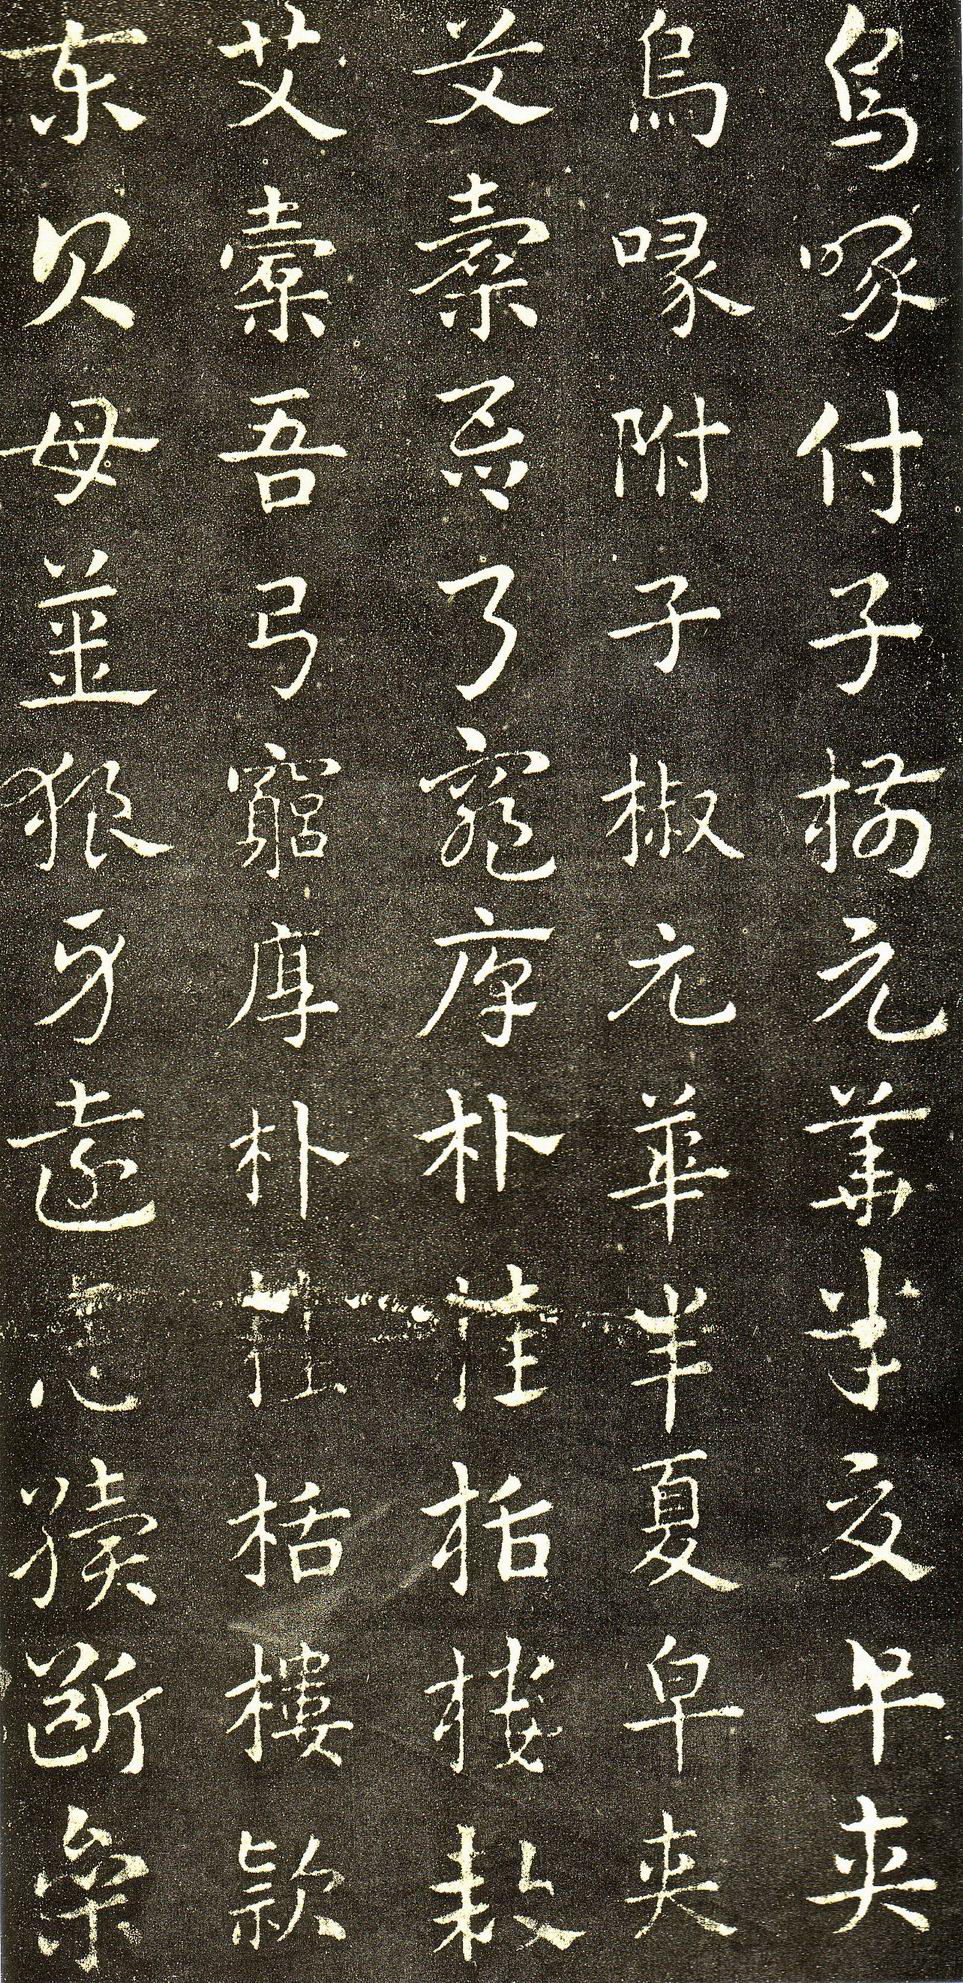 烏喙付子椒元華半夏早夾
烏喙附子椒元華半夏皁夾
艾橐吾弓窮厚朴桂栝樓款
艾橐吾弓窮厚朴桂栝樓款
東貝母薑狼牙遠志續斷參